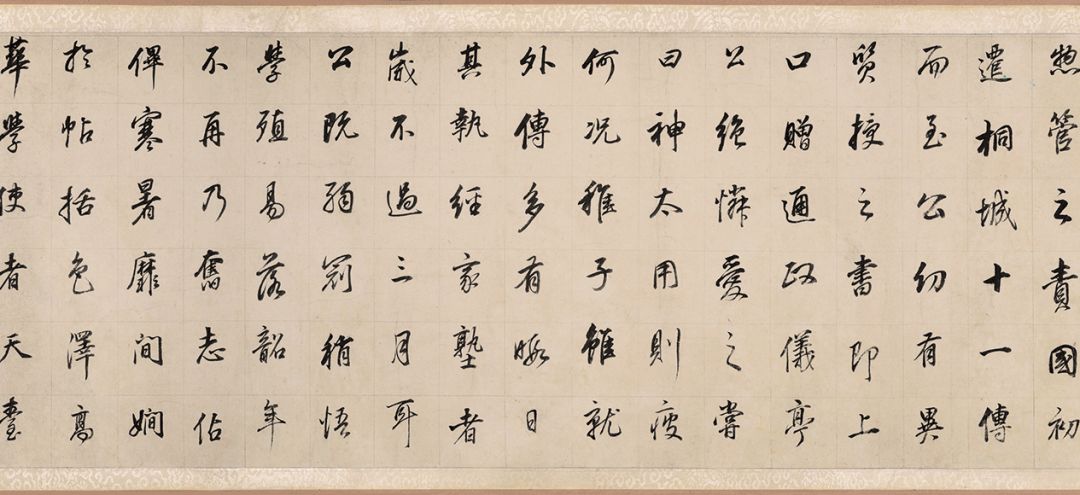 惣管之責國初
遷桐城十一傳
而至公公幼有異
質授之書即上
口贈通政儀亭
公絕憐愛之嘗
曰神太用則疲
何況稚子雖就
外傳多有暇日
其執經家塾者
歲不過三月耳
公既弱冠稍悟
學殖易落韶年
不再乃奮志佔
俾寒暑靡間嫺
於帖括色澤高
華學使者天臺